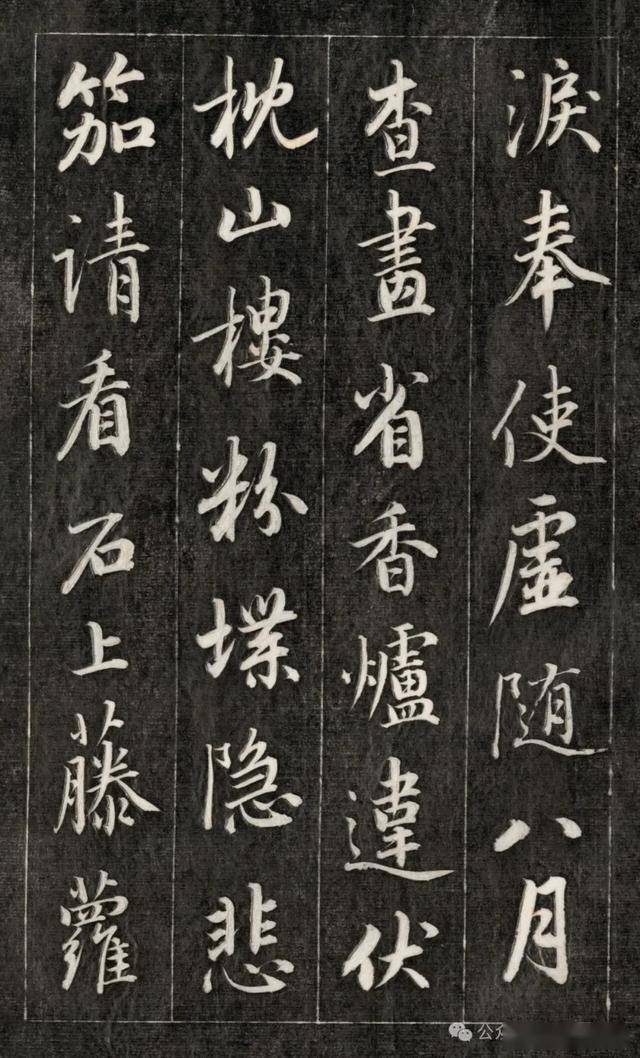 淚奉使虛随八月
查畫省香爐違伏
枕山樓粉堞隐悲
笳请看石上藤蘿
公众